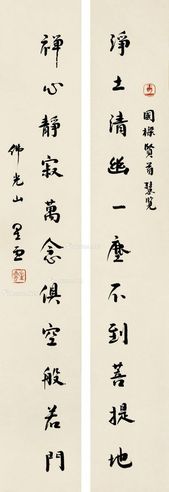 國樑賢首慧覽
淨土清幽一塵不到菩提地
禪心靜寂萬念俱空般若門
佛光山 星雲